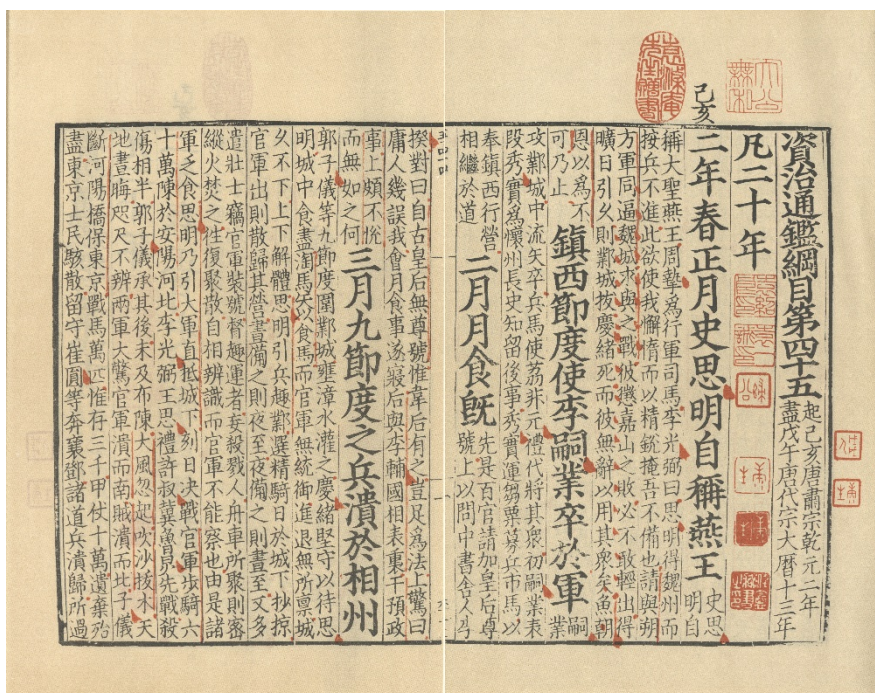 大公無私
資治通鑑綱目第四十五
起己亥唐肅宗乾元二年
盡戊午唐代宗大曆十三年
凡二十年
己亥
二年春正月史思明自稱燕王
史思
明自
稱大聖燕王周摯爲行軍司馬李光弼曰思明得魏州而
按兵不進此欲使我懈惰而以精銳掩吾不備也請與朔
方軍同逼魏城求與之戰彼懲嘉山之敗必不敢輕出得
曠日引久則鄴城拔慶緒死而彼無辭以用其衆矣魚朝
恩以爲不
可乃止
鎮西節度使李嗣業卒於軍
嗣
業
攻鄴城中流矢卒兵馬使荔非元禮代將其衆初嗣業表
段秀實爲懷州長史知留後事秀實運芻粟募兵市馬以
奉鎮西行營
相繼於道
二月月食旣
先是百官請加皇后尊
號上以問中書舍人李
揆對曰自古皇后無尊號惟韋后有之豈足爲法上驚曰
庸人幾誤我會月食事遂寢后與李輔國相表裏干預政
事上頗不悅
而無如之何
三月九節度之兵潰於相州
郭子儀等九節度圍鄴城壅漳水灌之慶緒堅守以待思
明城中食盡淘馬矢以食馬而官軍無統御進退無所稟城
久不下上下解體思明引兵趣鄴選精騎日於城下抄掠
官軍出則散歸其營晝備之則夜至夜備之則晝至又多
遣壯士竊官軍裝號督趣運者妄殺戮人舟車所聚則密
縱火焚之往復聚散自相辨識而官軍不能察也由是諸
軍乏食思明乃引大軍直抵城下刻日決戰官軍步騎六
十萬陳於安陽河北李光弼王思禮許叔冀魯炅先戰殺
傷相半郭子儀承其後未及布陳大風忽起吹沙拔木天
地晝晦咫尺不辨兩軍大驚官軍潰而南賊潰而北子儀
斷河陽橋保東京戰馬萬匹惟存三千甲仗十萬遺棄殆
盡東京士民駭散留守崔圓等奔襄鄧諸道兵潰歸所過